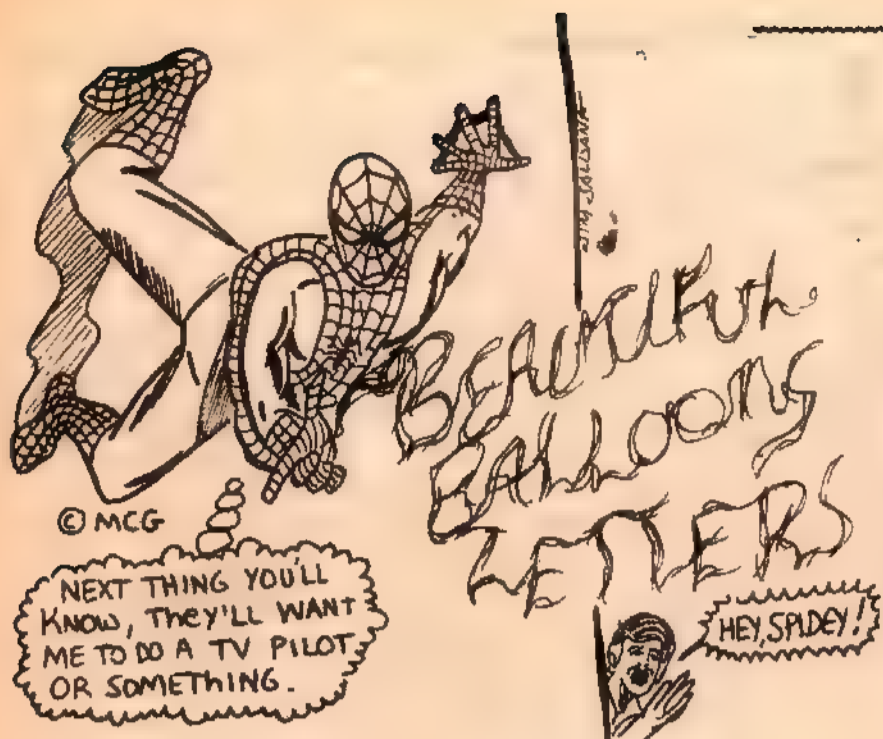 BEAUTIFUL
BALLOONS
LETTERS
© MCG
NEXT THING YOU'LL
KNOW, THEY'LL WANT
ME TO DO A TV PILOT
OR SOMETHING.
HEY, SPIDEY!